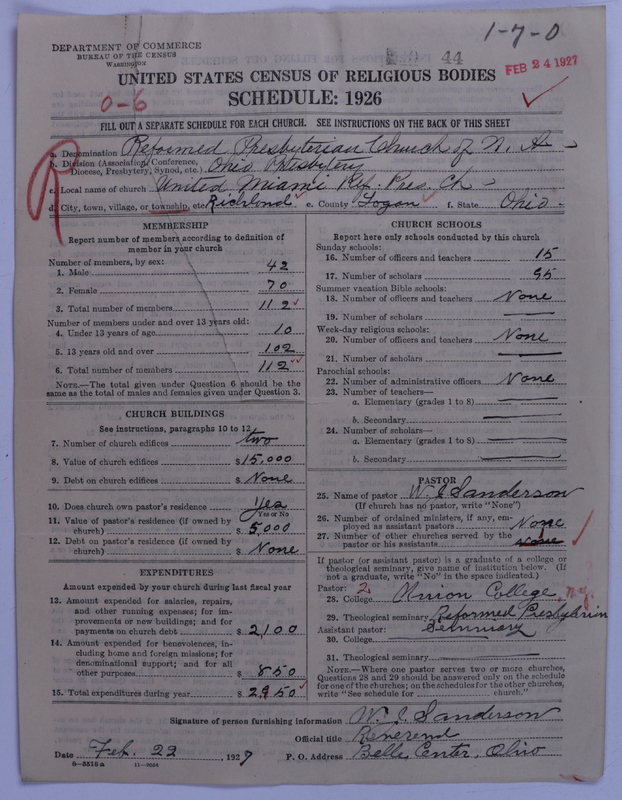 1-7-0
DEPARTMENT OF COMMERCE
BUREAU OF THE CENSUS
WASHINGTON
44
FEB 24 1927
UNITED STATES CENSUS OF RELIGIOUS BODIES
SCHEDULE: 1926
0-6
FILL OUT A SEPARATE SCHEDULE FOR EACH CHURCH. SEE INSTRUCTIONS ON THE BACK OF THIS SHEET
R
a. Denomination Reformed Presbyterian Church of N. A
b. Division (Association, Conference, Diocese, Presbytery, Synod, etc.) Ohio Presbytery
c. Local name of church United Miami Ref. Pres. Ch
d. City, town, village, or township, etc. Richland e. County Logan f. State Ohio
MEMBERSHIP
Report number of members according to definition of
member in your church
Number of members, by sex:
1. Male 42
2. Female 70
3. Total number of members 112
Number of members under and over 13 years old:
4. Under 13 years of age 10
5. 13 years old and over 102
6. Total number of members 112
NOTE.—The total given under Question 6 should be the
same as the total of males and females given under Question 3.
CHURCH BUILDINGS
See instructions, paragraphs 10 to 12
7. Number of church edifices two
8. Value of church edifices $15,000
9. Debt on church edifices $ None
10. Does church own pastor's residence Yes
Yes or No
11. Value of pastor's residence (if owned by
church) $ 5,000
12. Debt on pastor's residence (if owned by
church) $ None
EXPENDITURES
Amount expended by your church during last fiscal year
13. Amount expended for salaries, repairs,
and other running expenses; for im-
provements or new buildings; and for
payments on church debt $ 2,100
14. Amount expended for benevolences, in-
cluding home and foreign missions; for
denominational support; and for all
other purposes $ 850
15. Total expenditures during year $ 2950
CHURCH SCHOOLS
Report here only schools conducted by this church
Sunday schools:
16. Number of officers and teachers 15
17. Number of scholars 95
Summer vacation Bible schools:
18. Number of officers and teachers None
19. Number of scholars
Week-day religious schools:
20. Number of officers and teachers None
21. Number of scholars
Parochial schools:
22. Number of administrative officers None
23. Number of teachers—
a. Elementary (grades 1 to 8)
b. Secondary
24. Number of scholars—
a. Elementary (grades 1 to 8)
b. Secondary
PASTOR
25. Name of pastor W. J. Sanderson
(If church has no pastor, write "None")
26. Number of ordained ministers, if any, em-
ployed as assistant pastors None
27. Number of other churches served by the
pastor or his assistants None
If pastor (or assistant pastor) is a graduate of a college or
theological seminary, give name of institution below. (If
not a graduate, write "No" in the space indicated.)
Pastor: 2
28. College College
29. Theological seminary Reformed Presbyterian
Seminary
Assistant pastor:
30. College
31. Theological seminary
NOTE.—Where one pastor serves two or more churches,
Questions 28 and 29 should be answered only on the schedule
for one of the churches; on the schedules for the other churches,
write "See schedule for church."
Signature of person furnishing information W. J. Sanderson
Official title Reverend
Date Feb. 22, 1927 P. O. Address Belle Center, Ohio
8-5518a 11-9264